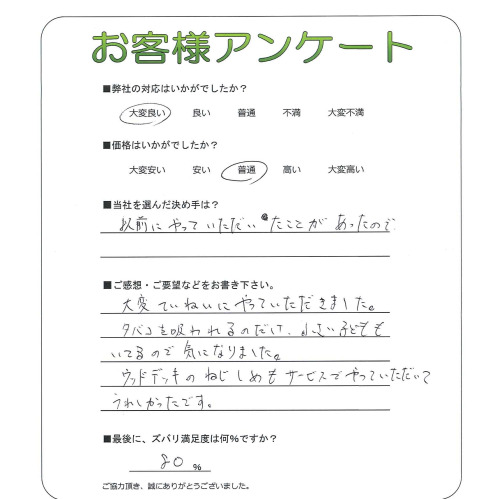 お客様アンケート
■弊社の対応はいかがでしたか？
大変良い 良い 普通 不満 大変不満
■価格はいかがでしたか？
大変安い 安い 普通 高い 大変高い
■当社を選んだ決め手は？
以前にやっていただいたことがあったので
■ご感想・ご要望などをお書き下さい。
大変ていねいにやっていただきました。
タバコを吸われるのだけ、小さい子どもも
いてるので気になりました。
ウッドデッキのねじしめもサービスでやっていただいて
うれしかったです。
■最後に、ズバリ満足度は何%ですか？
80 %
ご協力頂き、誠にありがとうございました。